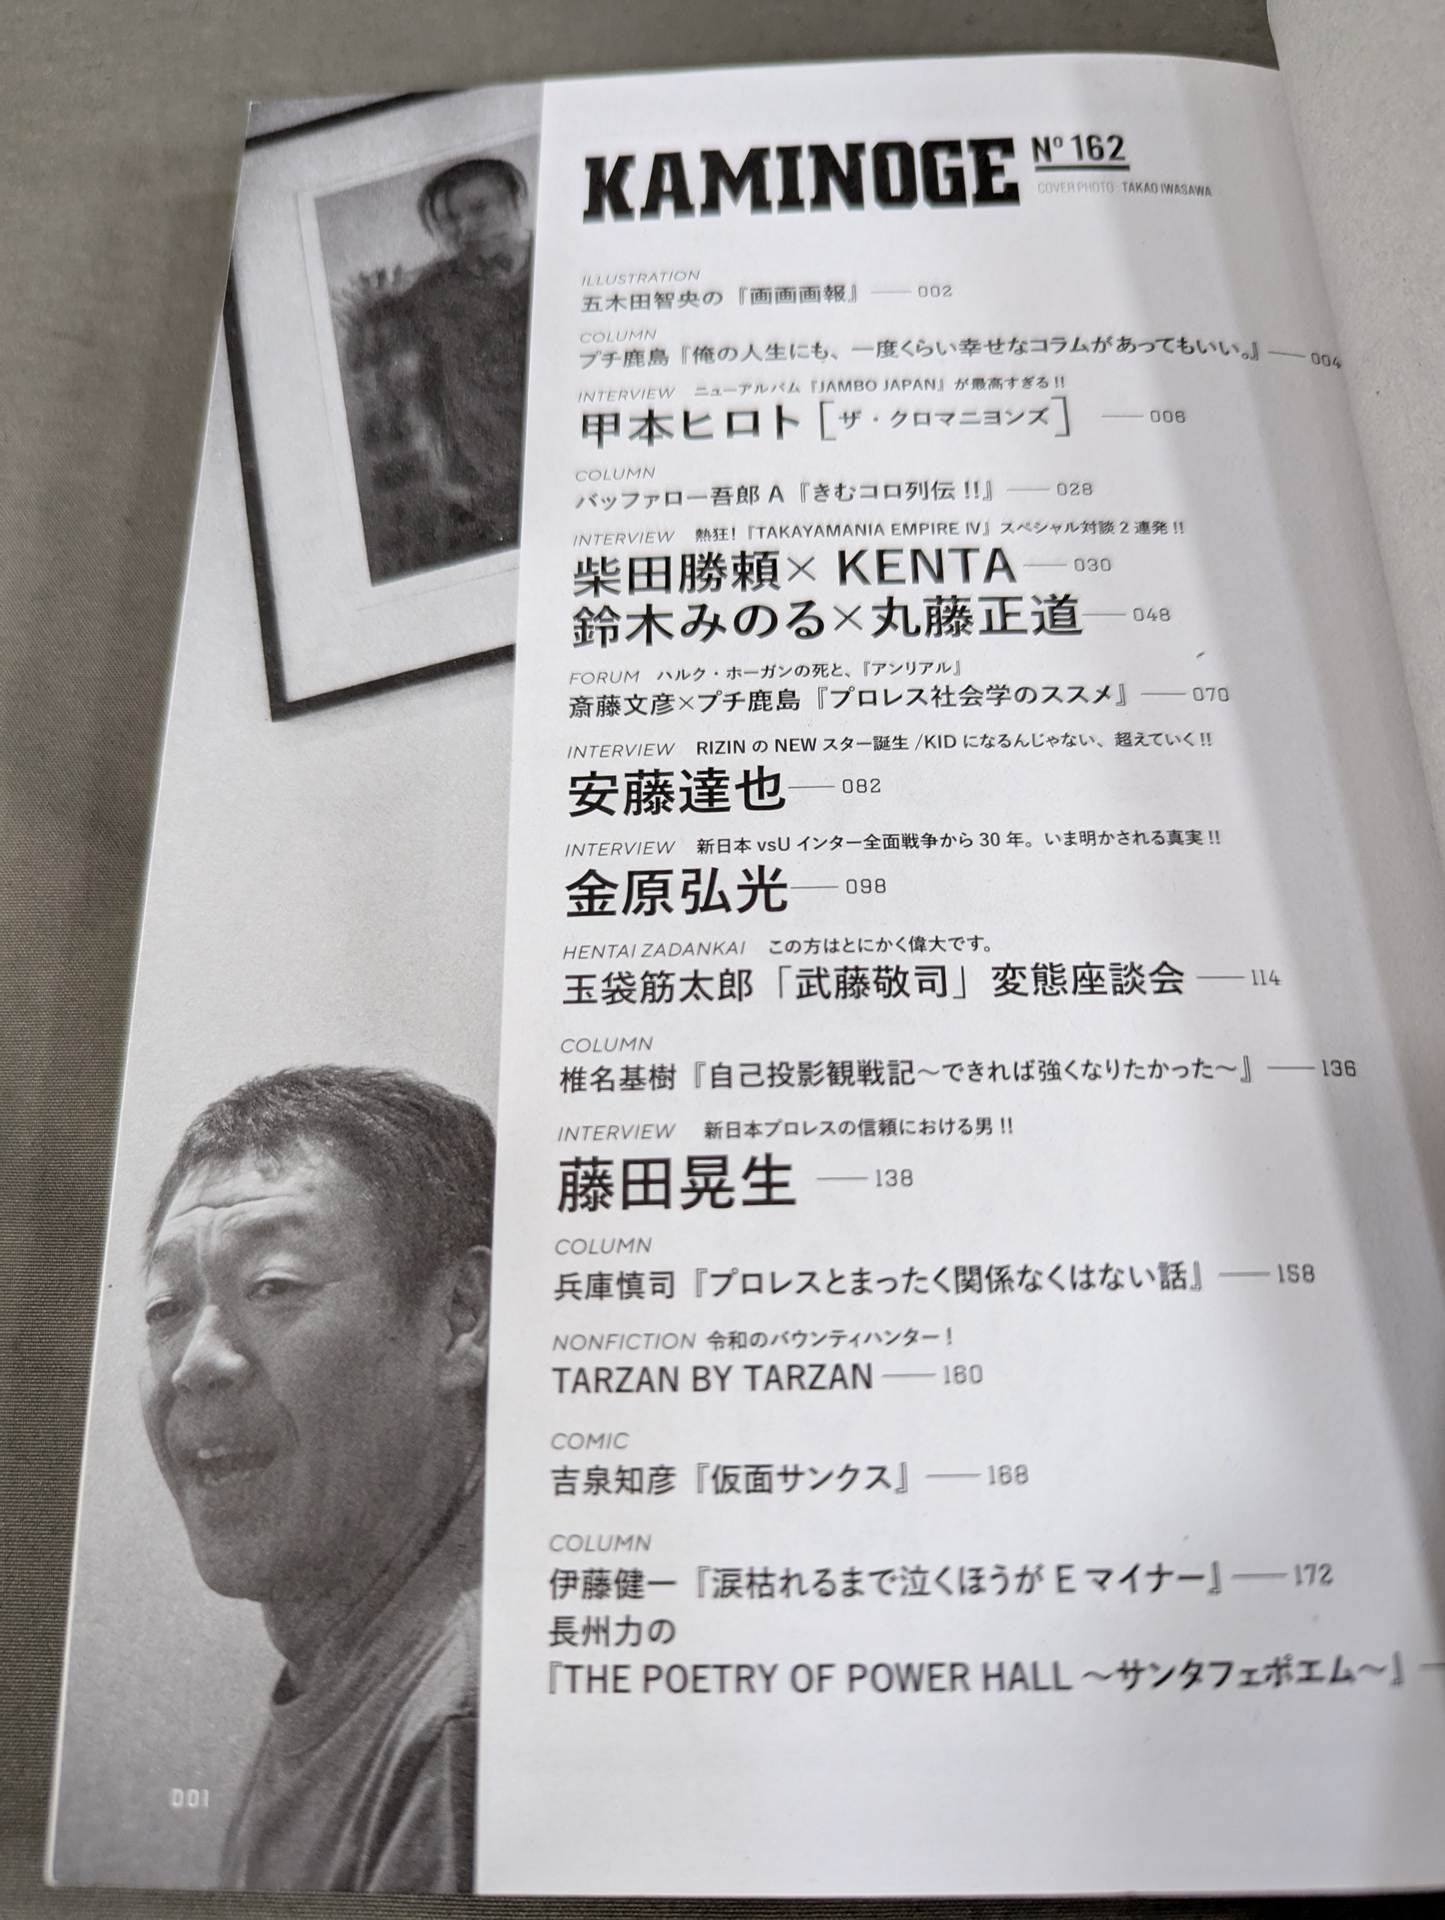 KAMINOGE Nº 162
COVER PHOTO : TAKAO IWASAWA
ILLUSTRATION
五木田智央の『画画画報』 002
COLUMN
プチ鹿島『俺の人生にも、一度くらい幸せなコラムがあってもいい。』 004
INTERVIEW ニューアルバム『JAMBO JAPAN』が最高すぎる!!
甲本ヒロト[ザ・クロマニヨンズ] 006
COLUMN
バッファロー吾郎 A『きむコロ列伝!!』 028
INTERVIEW 熱狂!『TAKAYAMANIA EMPIRE IV』スペシャル対談 2 連発!!
柴田勝頼×KENTA 030
鈴木みのる×丸藤正道 048
FORUM ハルク・ホーガンの死と、『アンリアル』
斎藤文彦×プチ鹿島『プロレス社会学のススメ』 070
INTERVIEW RIZIN の NEW スター誕生 /KID になるんじゃない、超えていく!!
安藤達也 082
INTERVIEW 新日本 vsU インター全面戦争から 30 年。いま明かされる真実!!
金原弘光 098
HENTAI ZADANKAI この方はとにかく偉大です。
玉袋筋太郎「武藤敬司」変態座談会 114
COLUMN
椎名基樹『自己投影観戦記~できれば強くなりたかった~』 136
INTERVIEW 新日本プロレスの信頼における男!!
藤田晃生 138
COLUMN
兵庫慎司『プロレスとまったく関係なくはない話』 158
NONFICTION 令和のバウンティハンター!
TARZAN BY TARZAN 160
COMIC
吉泉知彦『仮面サンクス』 168
COLUMN
伊藤健一『涙枯れるまで泣くほうが E マイナー』 172
長州力の
『THE POETRY OF POWER HALL ~サンタフェポエム~』
001